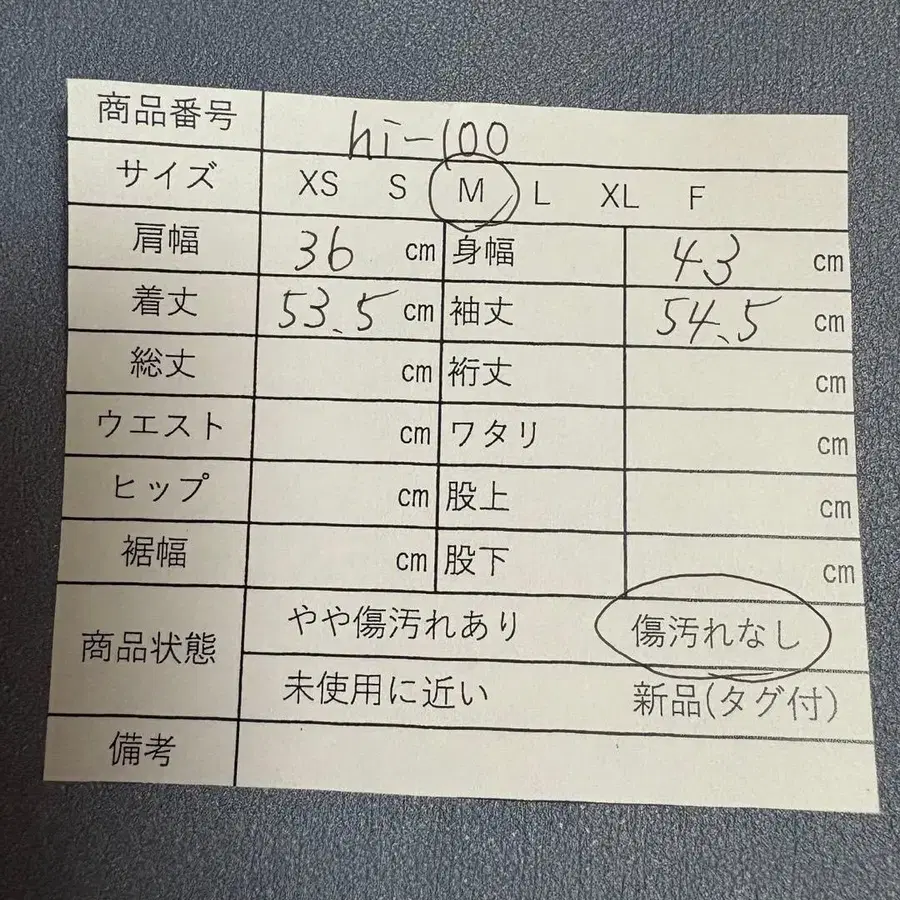 商品番号 hi-100
サイズ XS S M L XL F
肩幅 36 cm 身幅 43 cm
着丈 53.5 cm 袖丈 54.5 cm
総丈 cm 裄丈 cm
ウエスト cm ワタリ cm
ヒップ cm 股上 cm
裾幅 cm 股下 cm
商品状態 やや傷汚れあり 傷汚れなし
未使用に近い 新品(タグ付)
備考